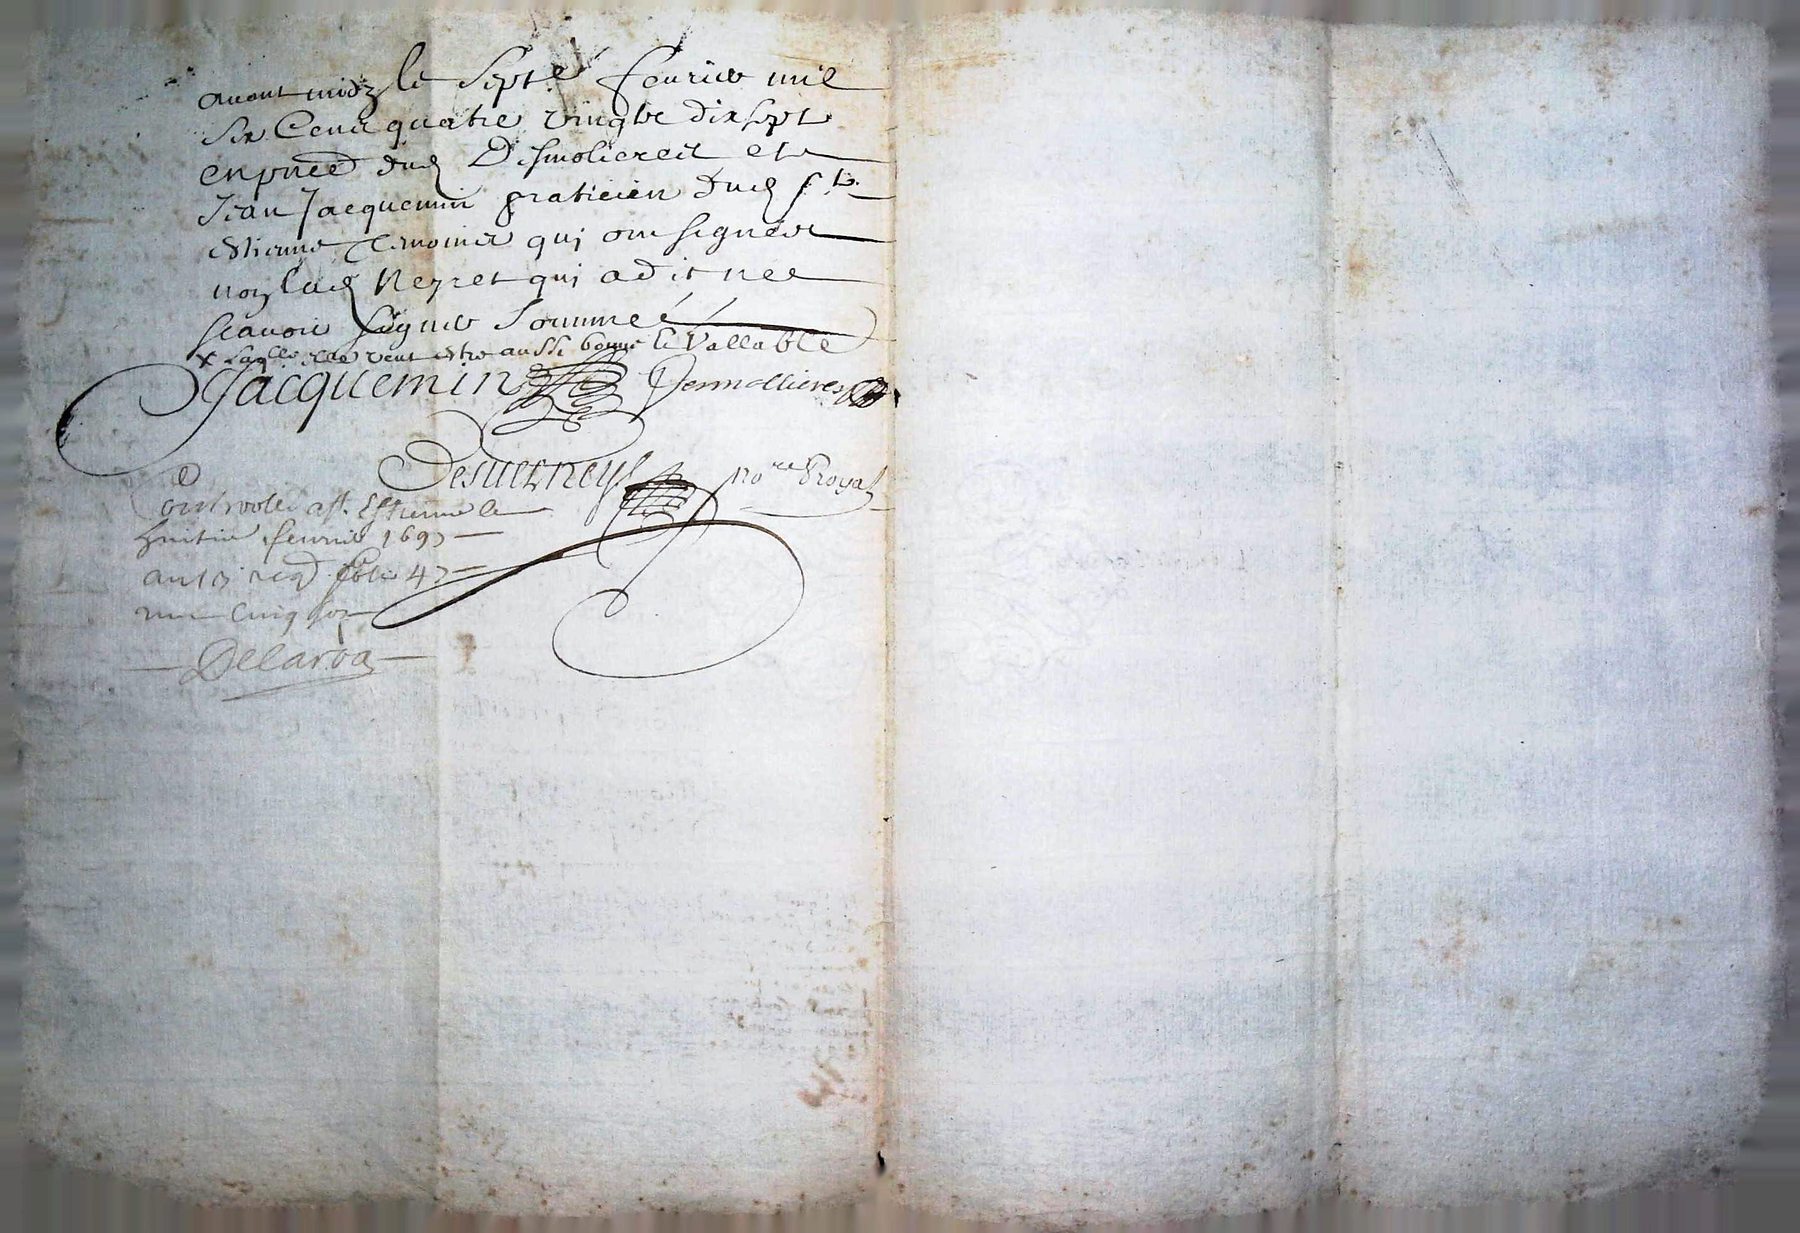 avant midy le sept.e feurier mil
six Cens quatre vingtz dix sept
en pnce dud Desmolieres et
Jean Jacquemin praticien dud St.
Estienne temoins qui ont signés et
non lad Neyret qui a dit ne
scauoir signer sommé
x laqlle vent estre aussi bonne & Vallable
Jacquemin Desmollieres
Desuerneys no.re Royal
Controlé a St. Estienne le
huitie feurier 1697
au 13 reg fol. 47
cinq sols
Delaroa